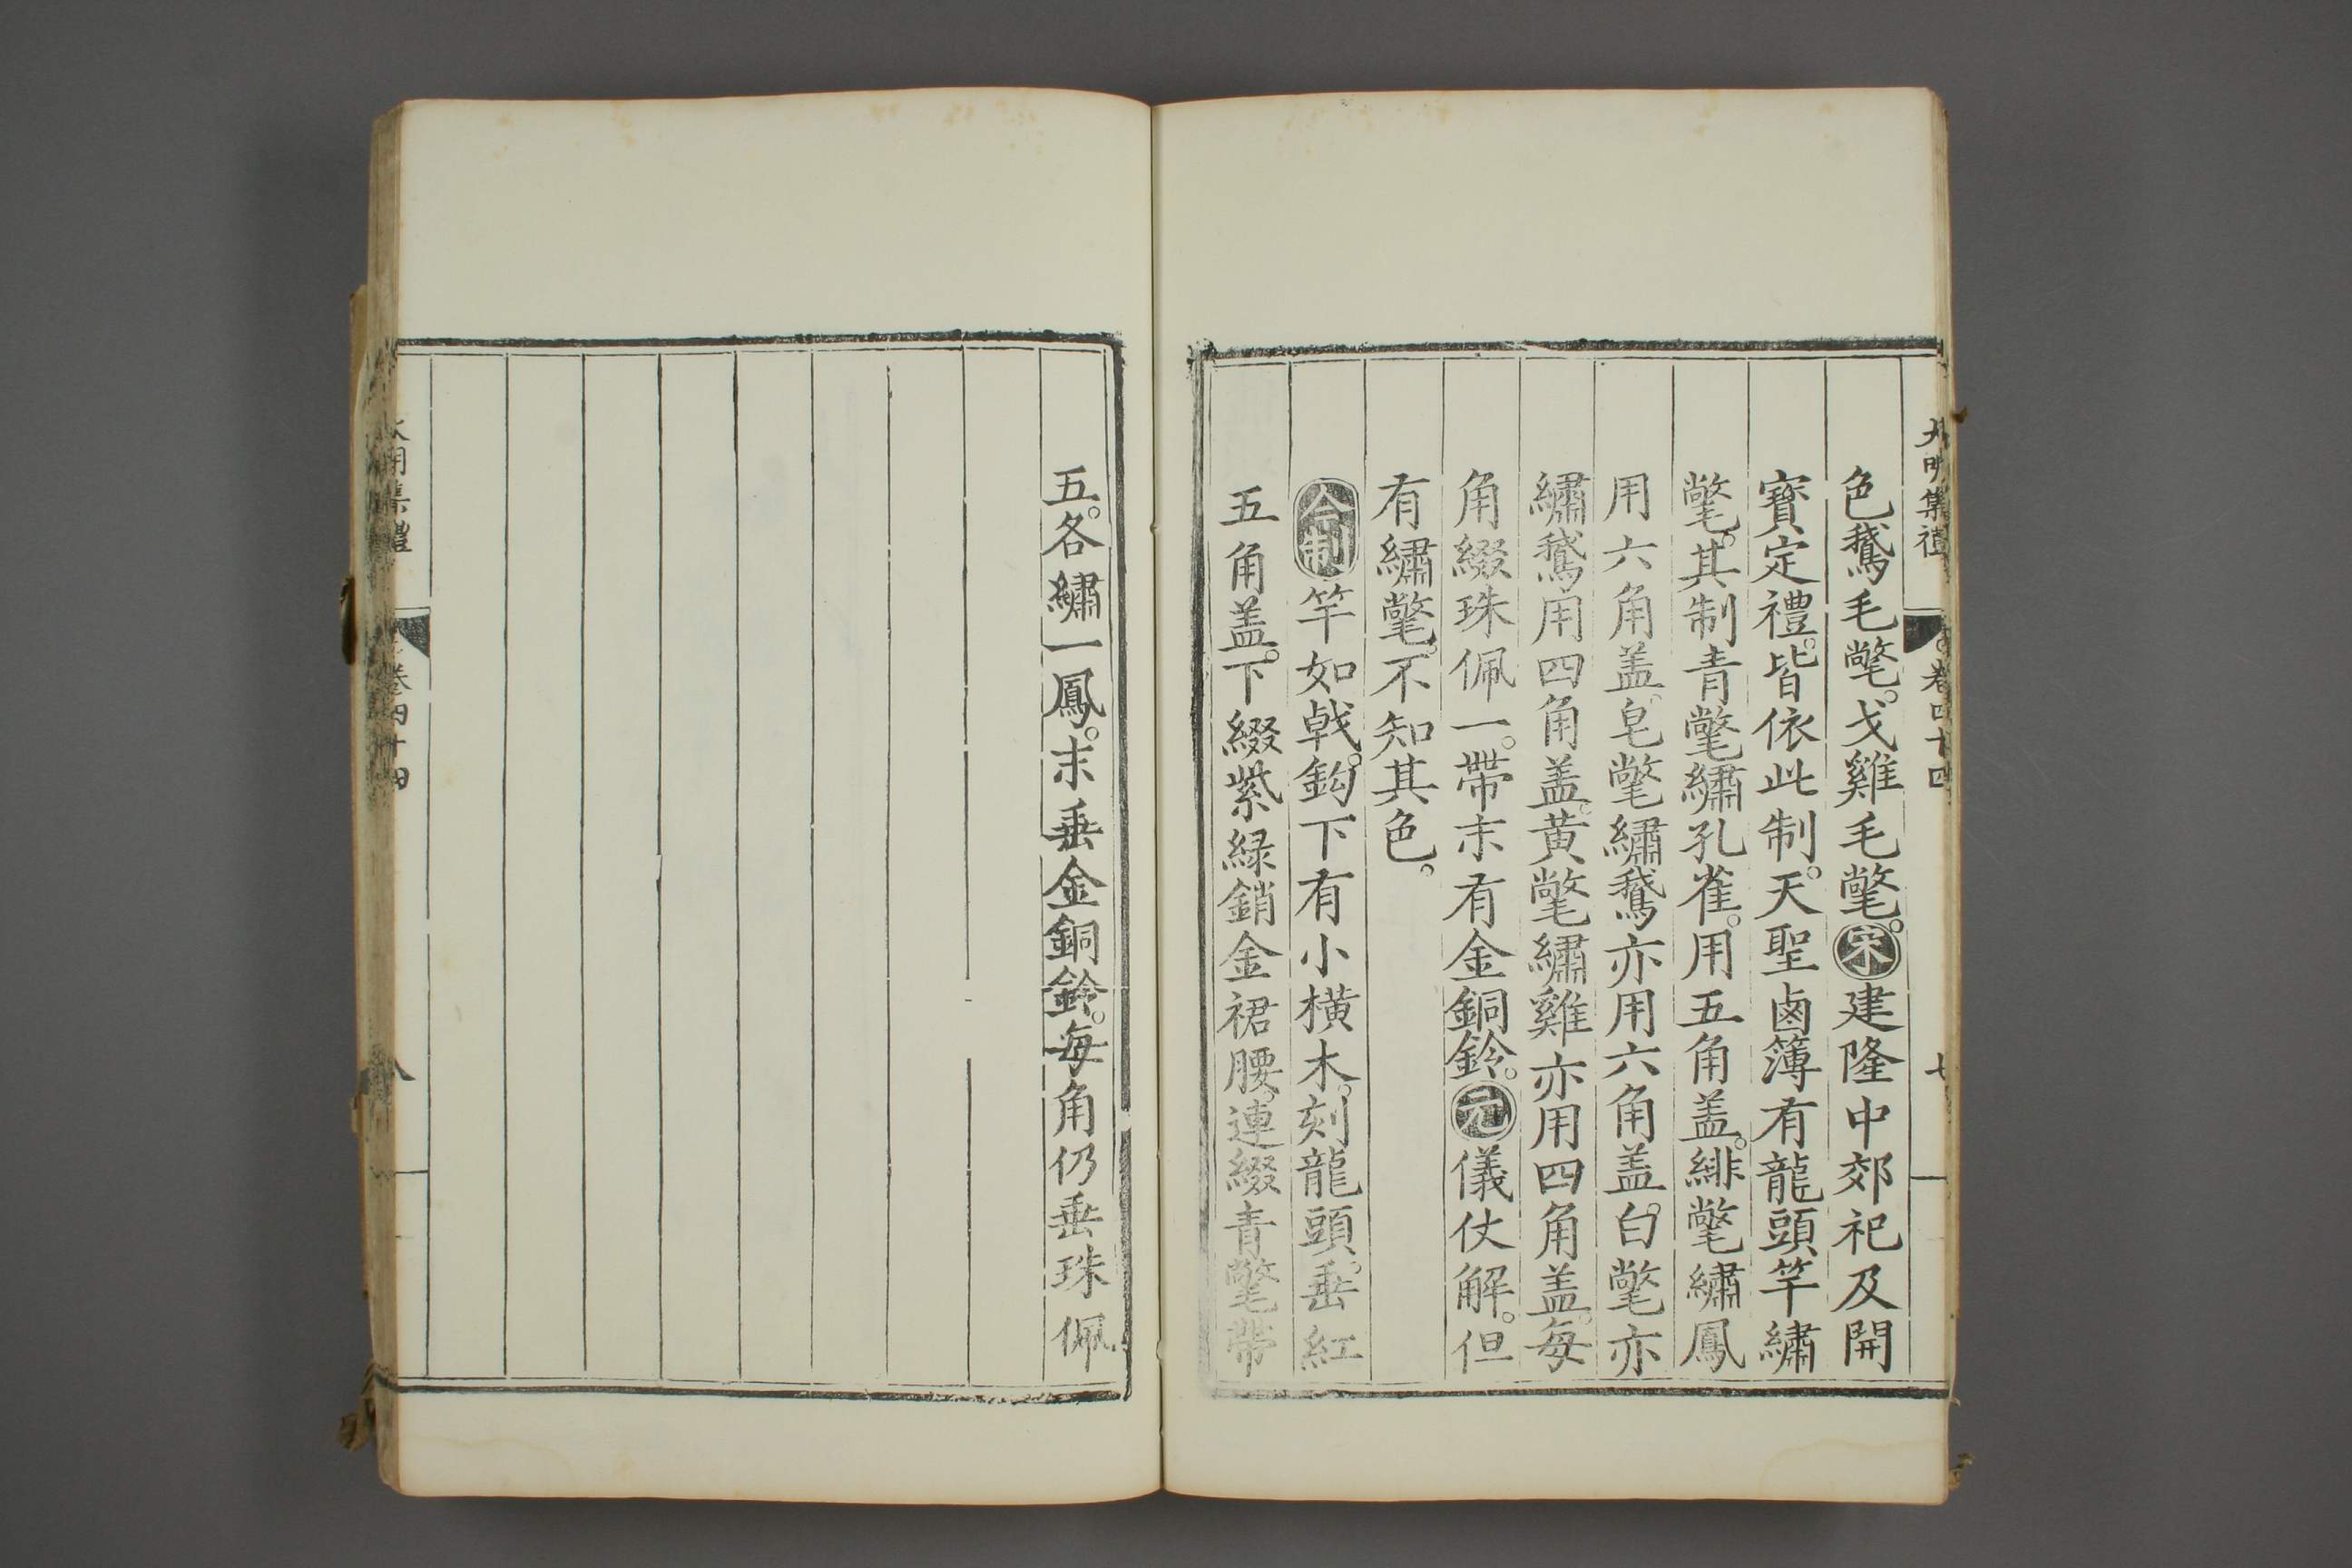 大明集禮 卷四十四 七
色鵞毛氅。戈雞毛氅。宋建隆中郊祀及開
寳定禮。皆依此制。天聖鹵簿有龍頭竿繡
氅。其制青氅繡孔雀。用五角盖。緋氅繡鳳
用六角盖。皂氅繡鵞亦用六角盖。白氅亦
繡鵞。用四角盖。黄氅繡雞亦用四角盖。每
角綴珠佩一。帶末有金銅鈴。元儀仗解。但
有繡氅。不知其色。
今制竿如戟。鈎下有小橫木。刻龍頭。垂紅
五角盖。下綴紫緑銷金裙腰。連綴青氅帶
五。各繡一鳳。末垂金銅鈴。每角仍垂珠佩
大明集禮 卷四十四 八